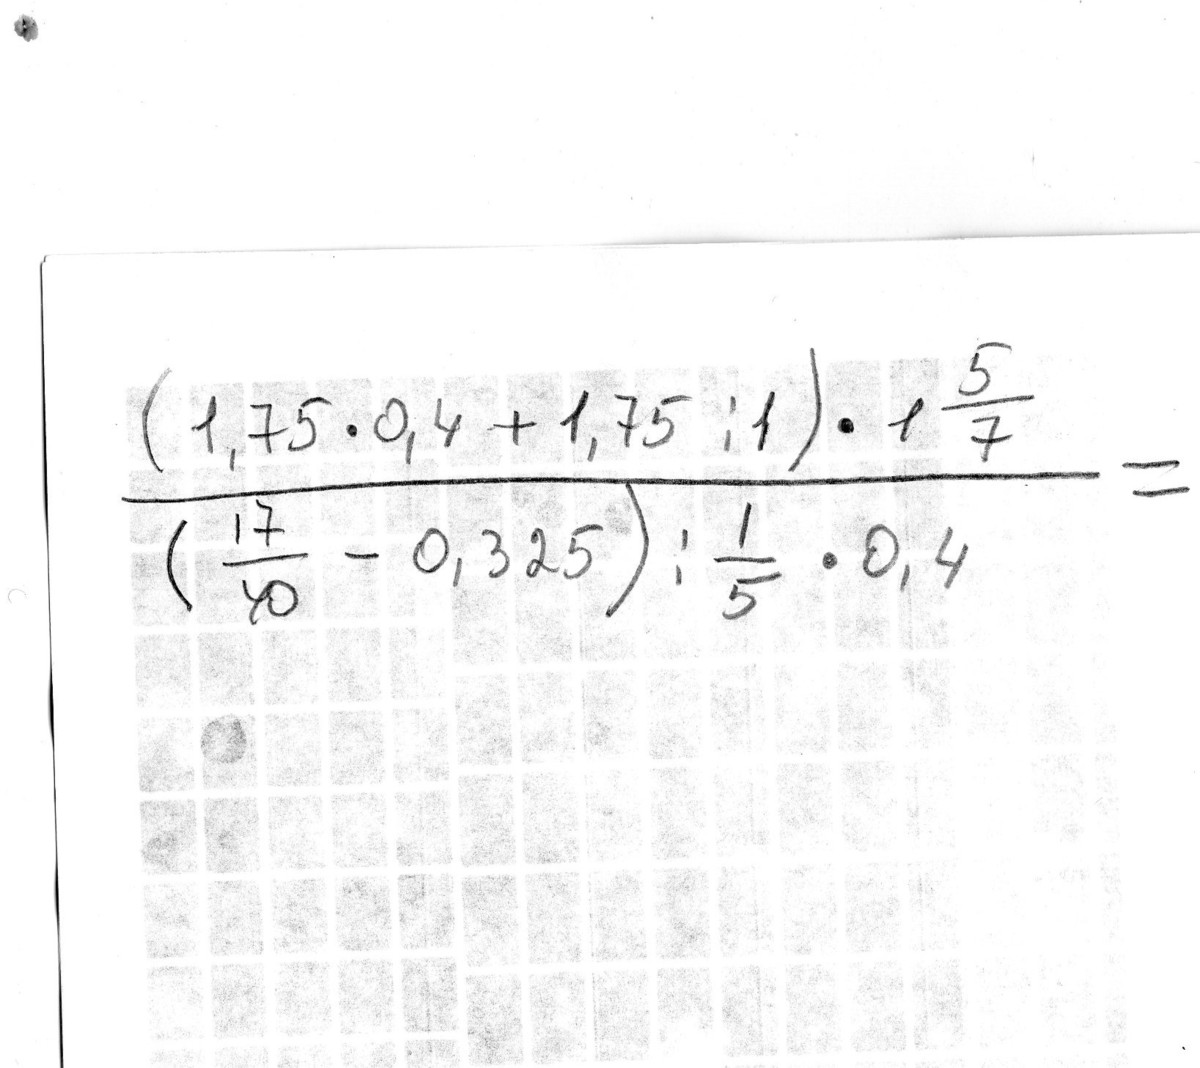 (1,75·0,4 + 1,75 : 1) · 1 5/7
(17/40 - 0,325) : 1/5 · 0,4 =